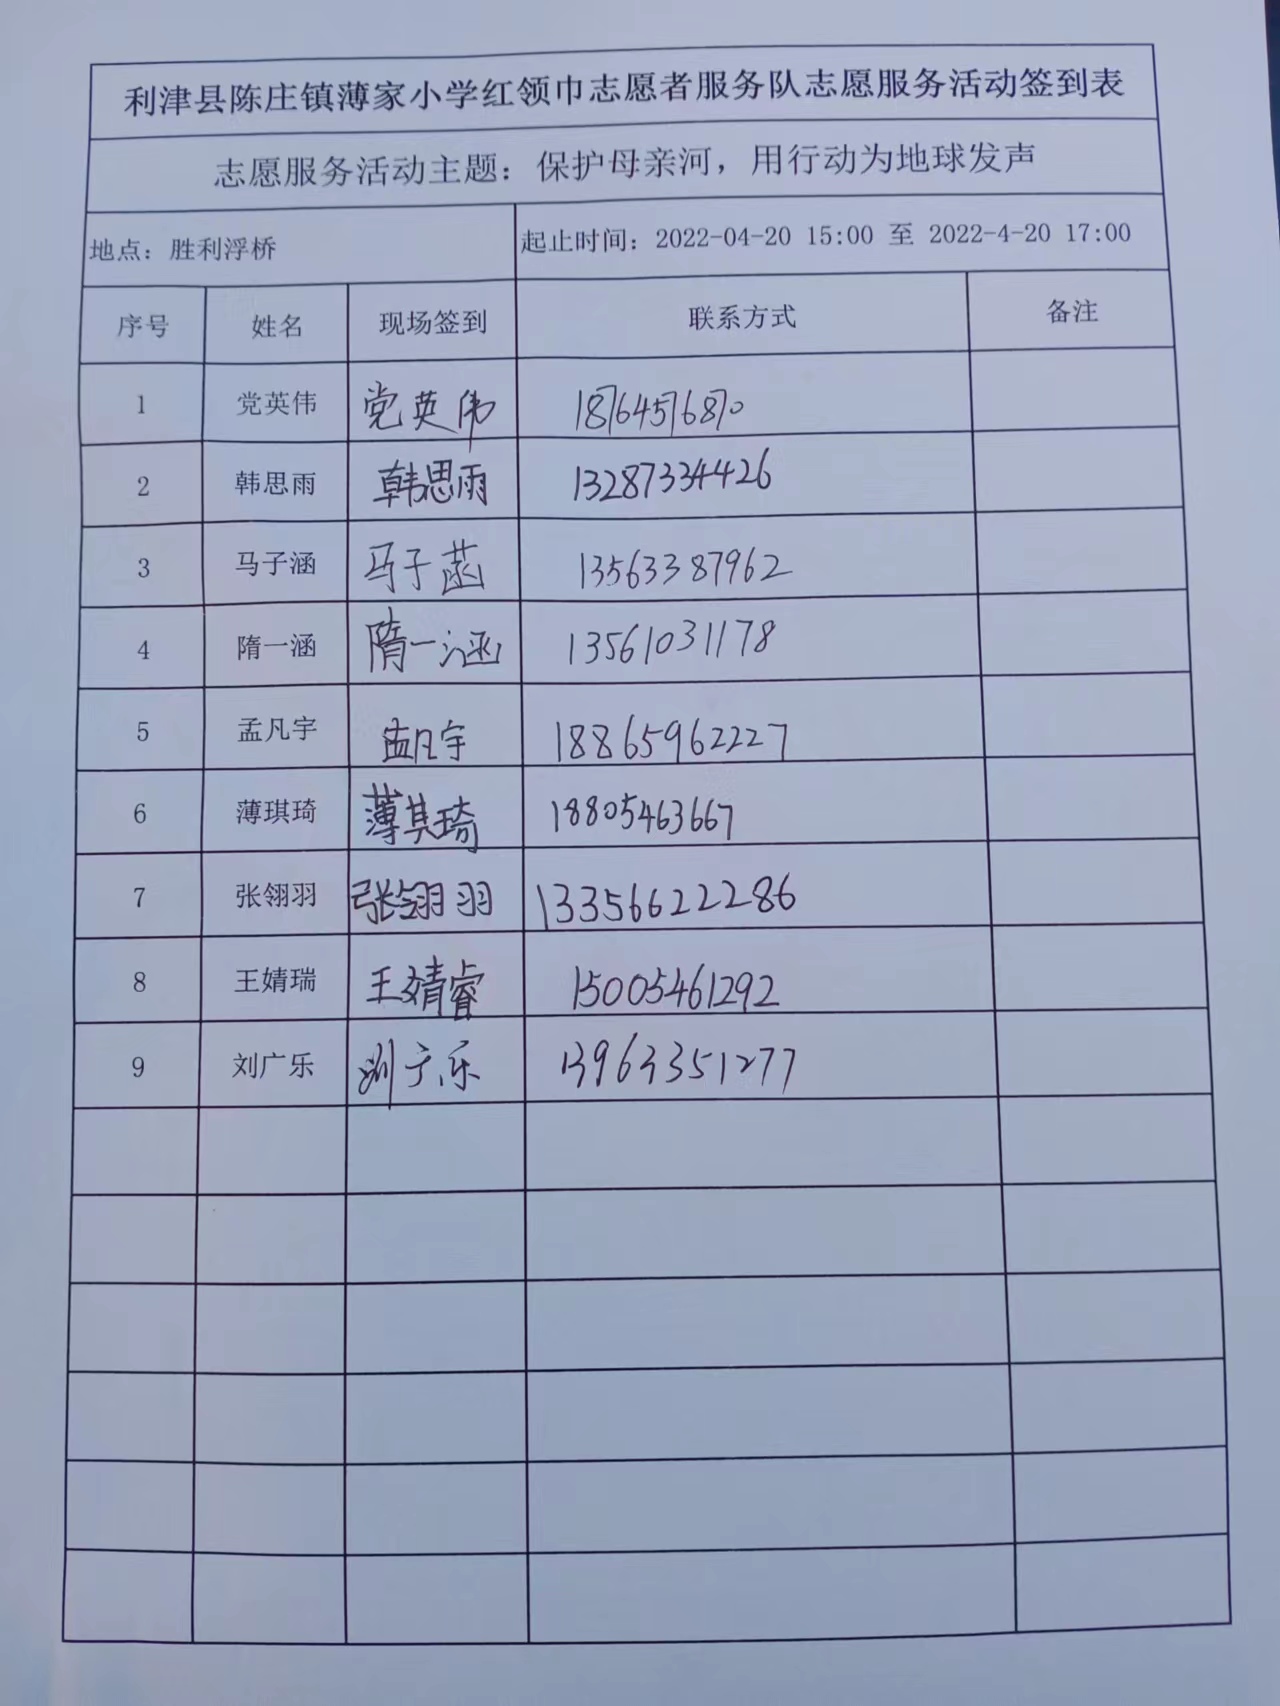 利津县陈庄镇薄家小学红领巾志愿者服务队志愿服务活动签到表
志愿服务活动主题：保护母亲河，用行动为地球发声
地点：胜利浮桥 起止时间：2022-04-20 15:00 至 2022-4-20 17:00
序号 姓名 现场签到 联系方式 备注
1 党英伟 党英伟 18764576870
2 韩思雨 韩思雨 13287334426
3 马子涵 马子菡 13563387962
4 隋一涵 隋一涵 13561031178
5 孟凡宇 孟凡宇 18865962227
6 薄琪琦 薄其琦 18805463667
7 张翎羽 张翎羽 13356622286
8 王婧瑞 王婧睿 15005461292
9 刘广乐 刘广乐 13963351277